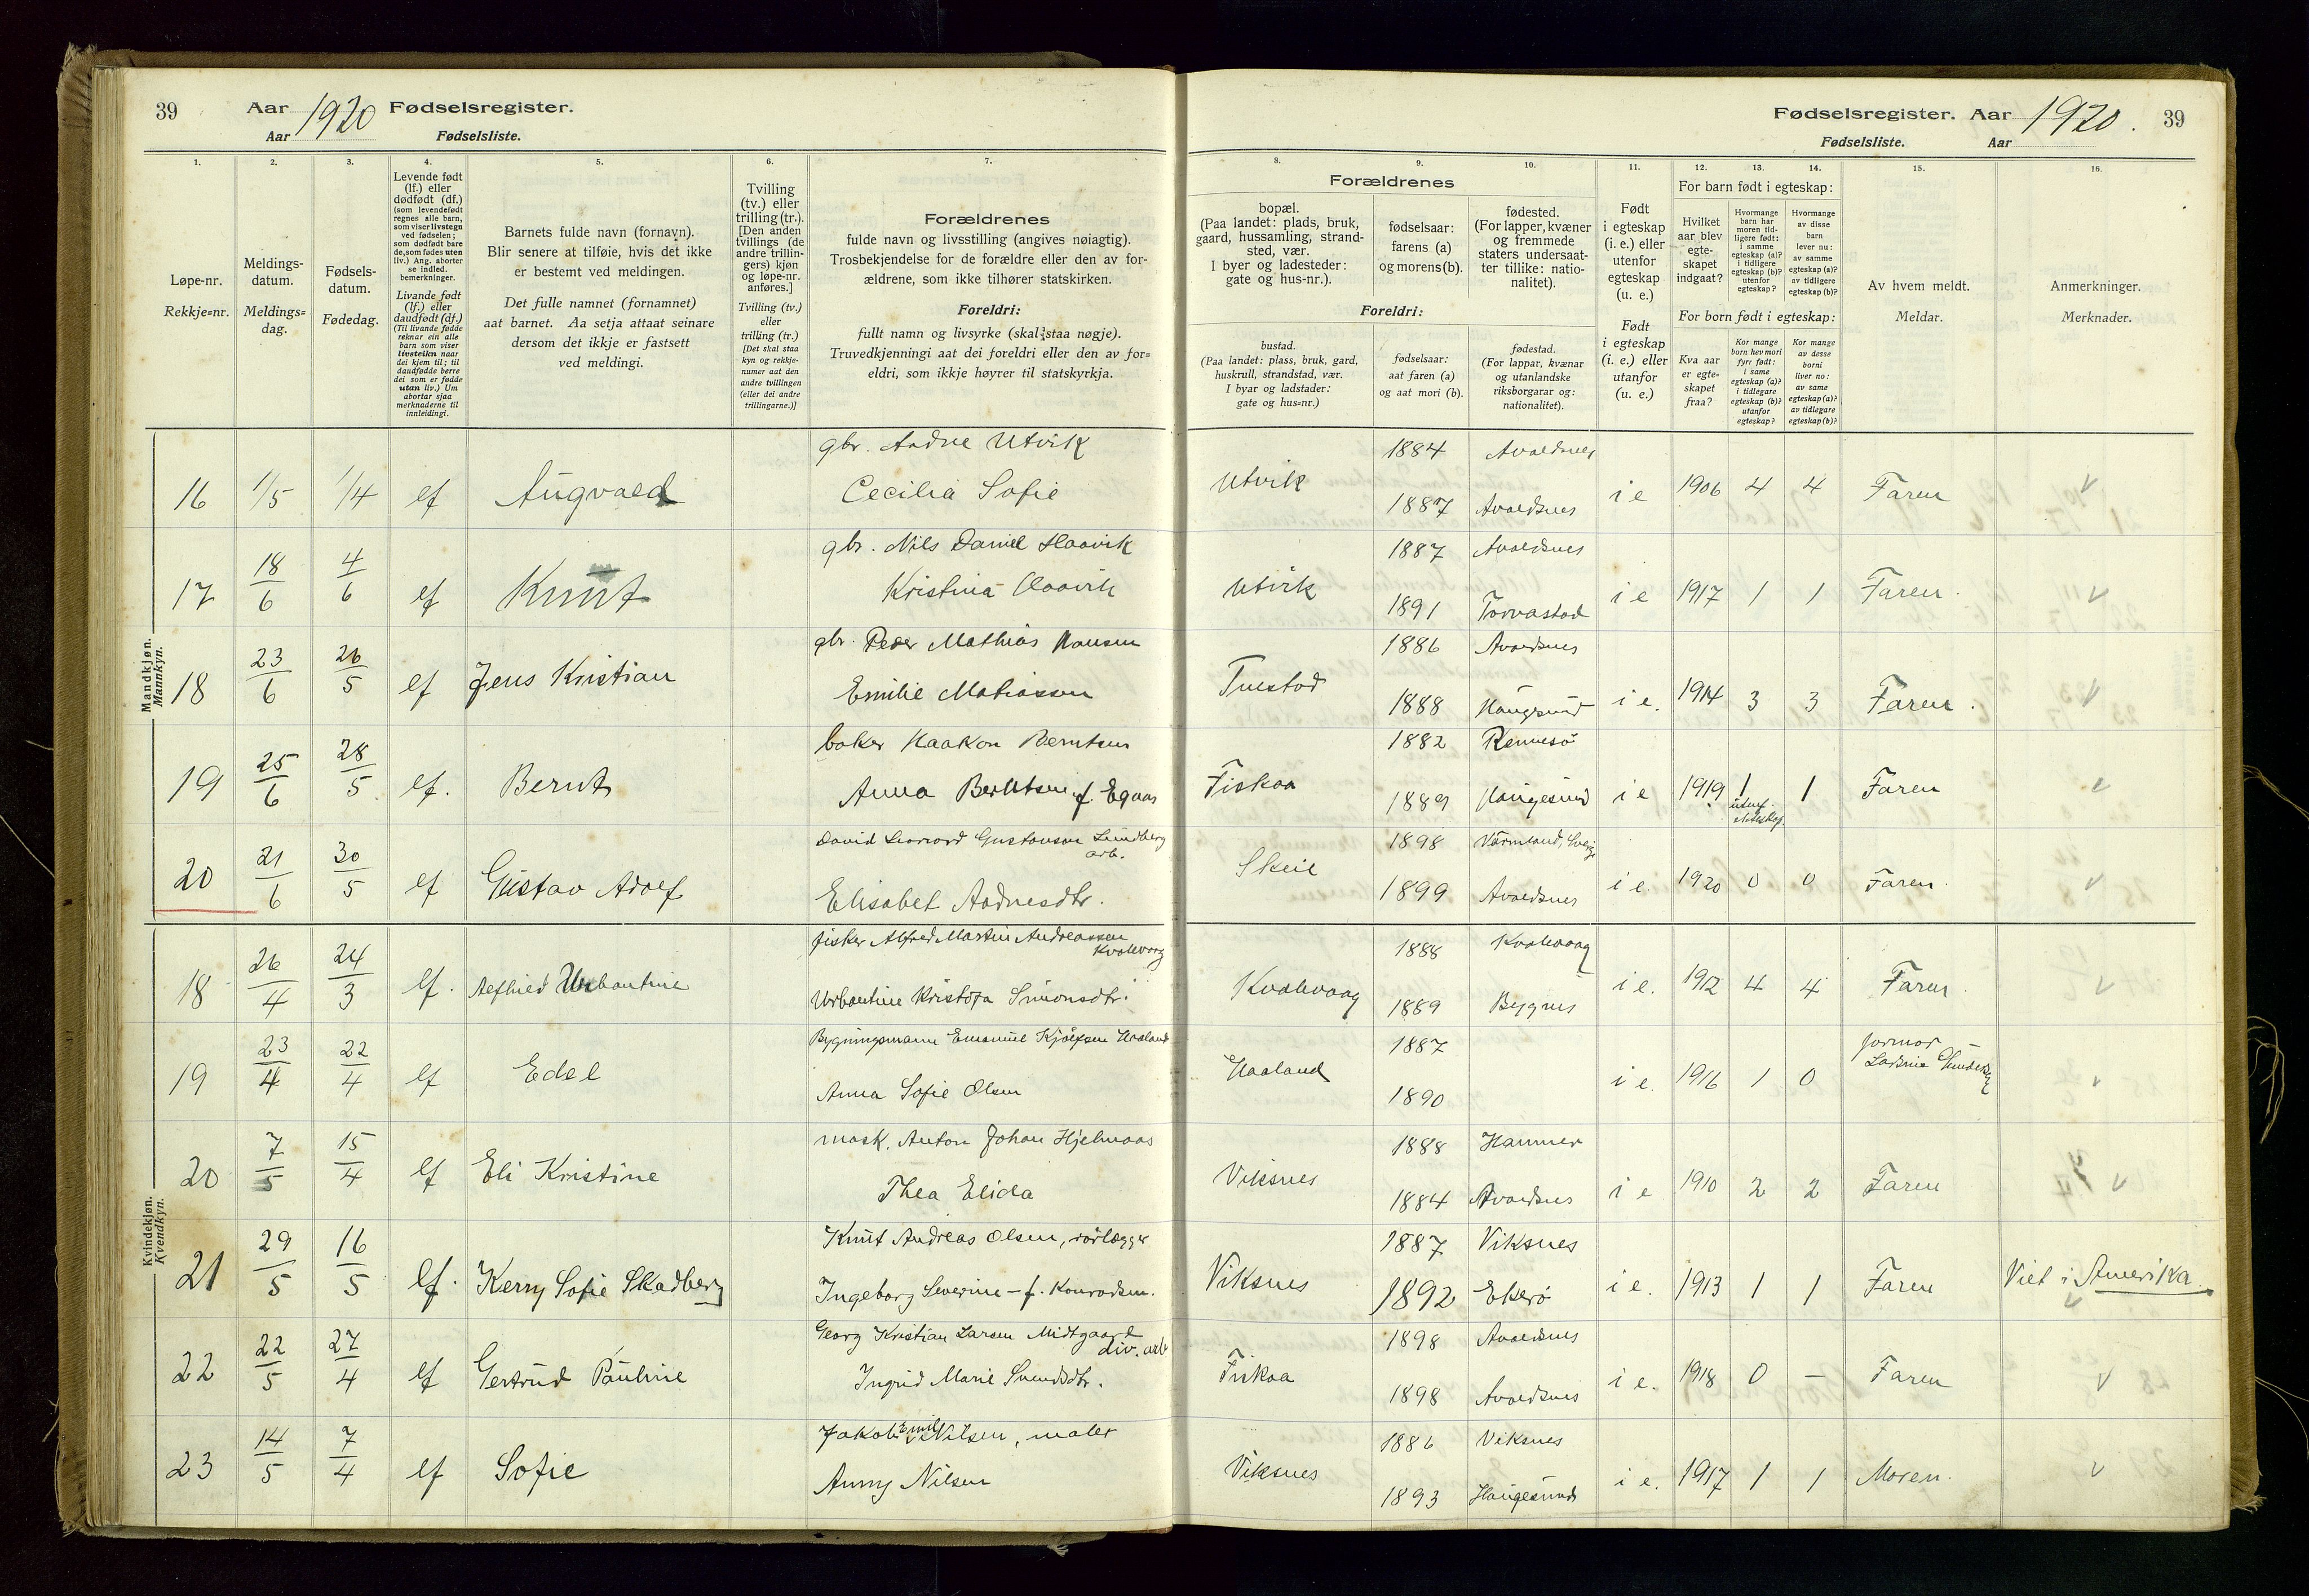 39
Aar 1920 Fødselsregister.
Aar Fødselsliste.
1.
2.
3.
4.
5.
6.
7.
Løpe-nr.
Rekkje=nr.
Meldings-
datum.
Meldings=
dag.
Fødsels-
datum.
Fødedag.
Levende født
(lf.) eller
dødfødt (df.)
(som levendefødt
regnes alle barn,
som viser livstegn
ved fødselen;
som dødfødt bare
de, som fødes uten
liv.) Ang. aborter
se indled.
bemerkninger.
Livande født
(lf.) eller
daudfødt (df.)
(Til livande fødde
reknar ein alle
barn som viser
livsteikn naar
dei kjem til; til
daudfødde berre
dei som er fødde
utan liv.) Um
abortar sjaa
merknaderne til
innleidingi.
Barnets fulde navn (fornavn).
Blir senere at tilføie, hvis det ikke
er bestemt ved meldingen.
Det fulle namnet (fornamnet)
aat barnet. Aa setja attaat seinare
dersom det ikkje er fastsett
ved meldingi.
Tvilling
(tv.) eller
trilling (tr.).
[Den anden
tvillings (de
andre trillin-
gers) kjøn
og løpe-nr.
anføres.]
Tvilling (tv.)
eller
trilling (tr.)
[Det skal staa
kyn og rekkje-
numer aat den
andre tvillingen
(eller dei andre
trillingarne.)]
Forældrenes
fulde navn og livsstilling (angives nøiagtig).
Trosbekjendelse for de forældre eller den av for-
ældrene, som ikke tilhører statskirken.
Foreldri:
fullt namn og livsyrke (skal staa nøgje).
Truvedkjenningi aat dei foreldri eller den av for=
eldri, som ikkje høyrer til statskyrkja.
Fødselsregister. Aar 1920. 39
Fødselsliste. Aar
8.
9.
10.
11.
12.
13.
14.
15.
16.
Forældrenes
bopæl.
(Paa landet: plads, bruk,
gaard, hussamling, strand-
sted, vær.
I byer og ladesteder:
gate og hus-nr.).
fødselsaar:
farens (a)
og morens (b).
fødested.
(For lapper, kvæner
og fremmede
staters undersaat-
ter tillike: natio-
nalitet).
Foreldri:
bustad.
(Paa landet: plass, bruk, gard,
huskrull, strandstad, vær.
I byar og ladstader:
gate og hus=nr.)
fødselsaar:
aat faren (a)
og aat mori (b).
fødestad.
(For lappar, kvænar
og utanlandske
riksborgarar og:
nationalitet).
Født
i egteskap
(i. e.) eller
utenfor
egteskap
(u. e.)
Født
i egteskap
(i. e.) eller
utanfor
(u. e.)
For barn født i egteskap:
Hvilket
aar blev
egte-
skapet
indgaat?
Hvormange
barn har
moren tid-
ligere født:
i samme
egteskap (a)?
i tidligere
egteskap (b)?
utenfor
egteskap?
Hvormange
av disse
barn
lever nu:
av samme
egteskap (a)?
av tidligere
egteskap (b)?
For born født i egteskap:
Kva aar
er egte=
skapet
fraa?
Kor mange
born hev mori
fyrr født:
i same
egteskap (a)?
i tidlegare
egteskap (b)?
utanfor
egteskap?
Kor mange
av desse
borni
liver no:
av same
egteskap (a)?
av tidlegare
egteskap (b)?
Av hvem meldt.
Meldar.
Anmerkninger.
Merknader.
Mandkjøn.
Mannkyn.
16 1/5 1/4 lf Augvald gbr. Aadne Utvik Cecilia Sofie Utvik 1884 Avaldsnes 1887 Avaldsnes i e 1906 4 4 Faren
17 18/6 4/6 lf Knut gbr. Nils Daniel Haavik Kristina Haavik Utvik 1887 Avaldsnes 1891 Torvastad i e 1917 1 1 Faren.
18 23/6 26/5 lf Jens Kristian gbr. Peder Mathias Hansen Emilie Matiassen Tuestad 1886 Avaldsnes 1888 Haugesund i e. 1914 3 3 Faren.
19 25/6 28/5 lf. Bernt baker Haakon Berntsen Anna Berntsen f. Egaas Fiskaa 1882 Rennesø 1889 Haugesund i e 1919 1 utenf. ekteskap. 1 Faren
20 21/6 30/5 lf Gustav Adolf David Leonard Gustavson Lundberg arb. Elisabet Aadnesdtr. Skeie 1898 Värmland, Sverige 1899 Avaldsnes i e. 1920 0 0 Faren.
Kvindekjøn.
Kvendkyn.
18 26/4 24/3 lf. Alfhild Urbantine fisker Alfred Martin Andreassen Kvalevaag Urbantine Kristofa Simonsdtr. Kvalevaag 1888 Kvalevaag 1889 Bygnes i e. 1912 4 4 Faren.
19 23/4 22/4 lf Edel Bygningsmann Emanuel Kjølfsen Haaland Anna Sofie Olsen Haaland 1887 1890 i e. 1916 1 0 jormor
20 7/5 15/4 lf Eli Kristine mask. Anton Johan Hjelmaas Thea Elida Viksnes 1888 Hammer 1884 Avaldsnes i e 1910 2 2 Faren
21 29/5 16/5 lf. Kerry Sofie Skadberg Knut Andreas Olsen, rørlægger Ingeborg Severine – f. Konradsen. Viksnes 1887 Viksnes 1892 Ekerø i e. 1913 1 1 Faren Viet i Amerika
22 22/5 27/4 lf Gertrud Pauline Georg Kristian Larsen Midtgaard div. arb Ingrid Marie Svendsdtr. Fiskaa 1898 Avaldsnes 1898 Avaldsnes i e. 1918 0 – Faren
23 14/5 7/4 lf Sofie Jakob Emil Nilsen, maler Anny Nilsen Viksnes 1886 Viksnes 1893 Haugesund i e. 1917 1 1 Moren.